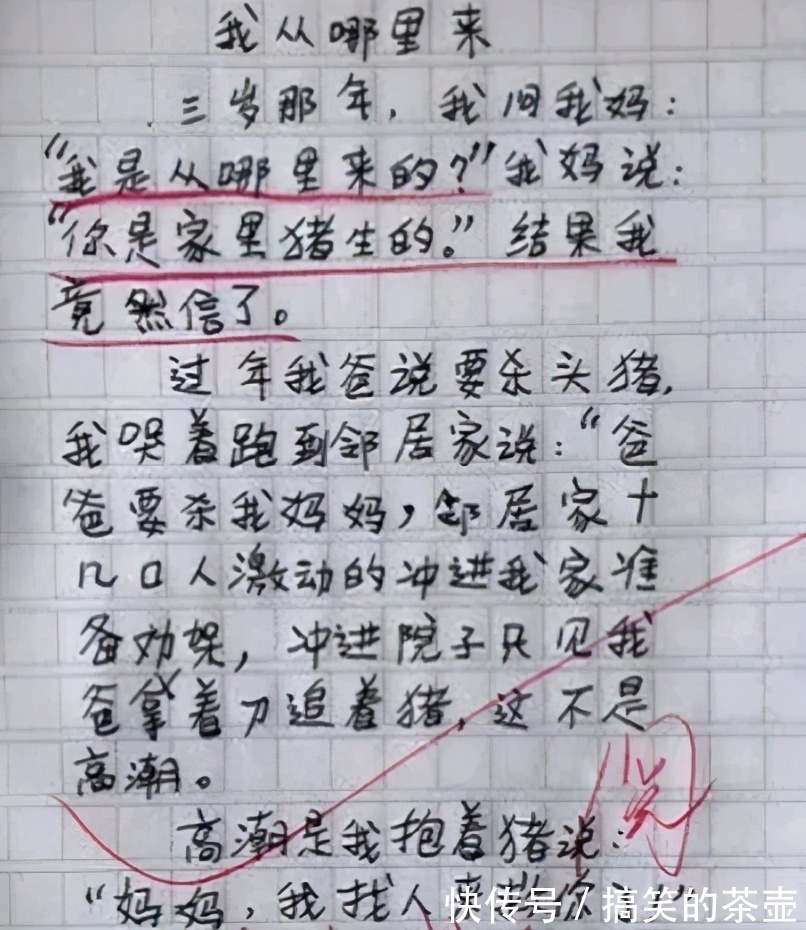 我从哪里来
三岁那年，我问我妈：
“我是从哪里来的？”我妈说：
“你是家里猪生的。”结果我
竟然信了。
过年我爸说要杀头猪，
我哭着跑到邻居家说：“爸
爸要杀我妈妈，邻居家十
几口人激动的冲进我家准
备劝架，冲进院子只见我
爸拿着刀追着猪，这不是
高潮。
高潮是我抱着猪说：
阅
“妈妈，我找人来
快传号/搞笑的茶壶